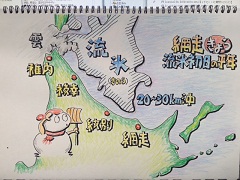 網走 きょう
流氷初日の平年
雲
流
氷
稚内
枝幸
20~30km沖
紋別
網走